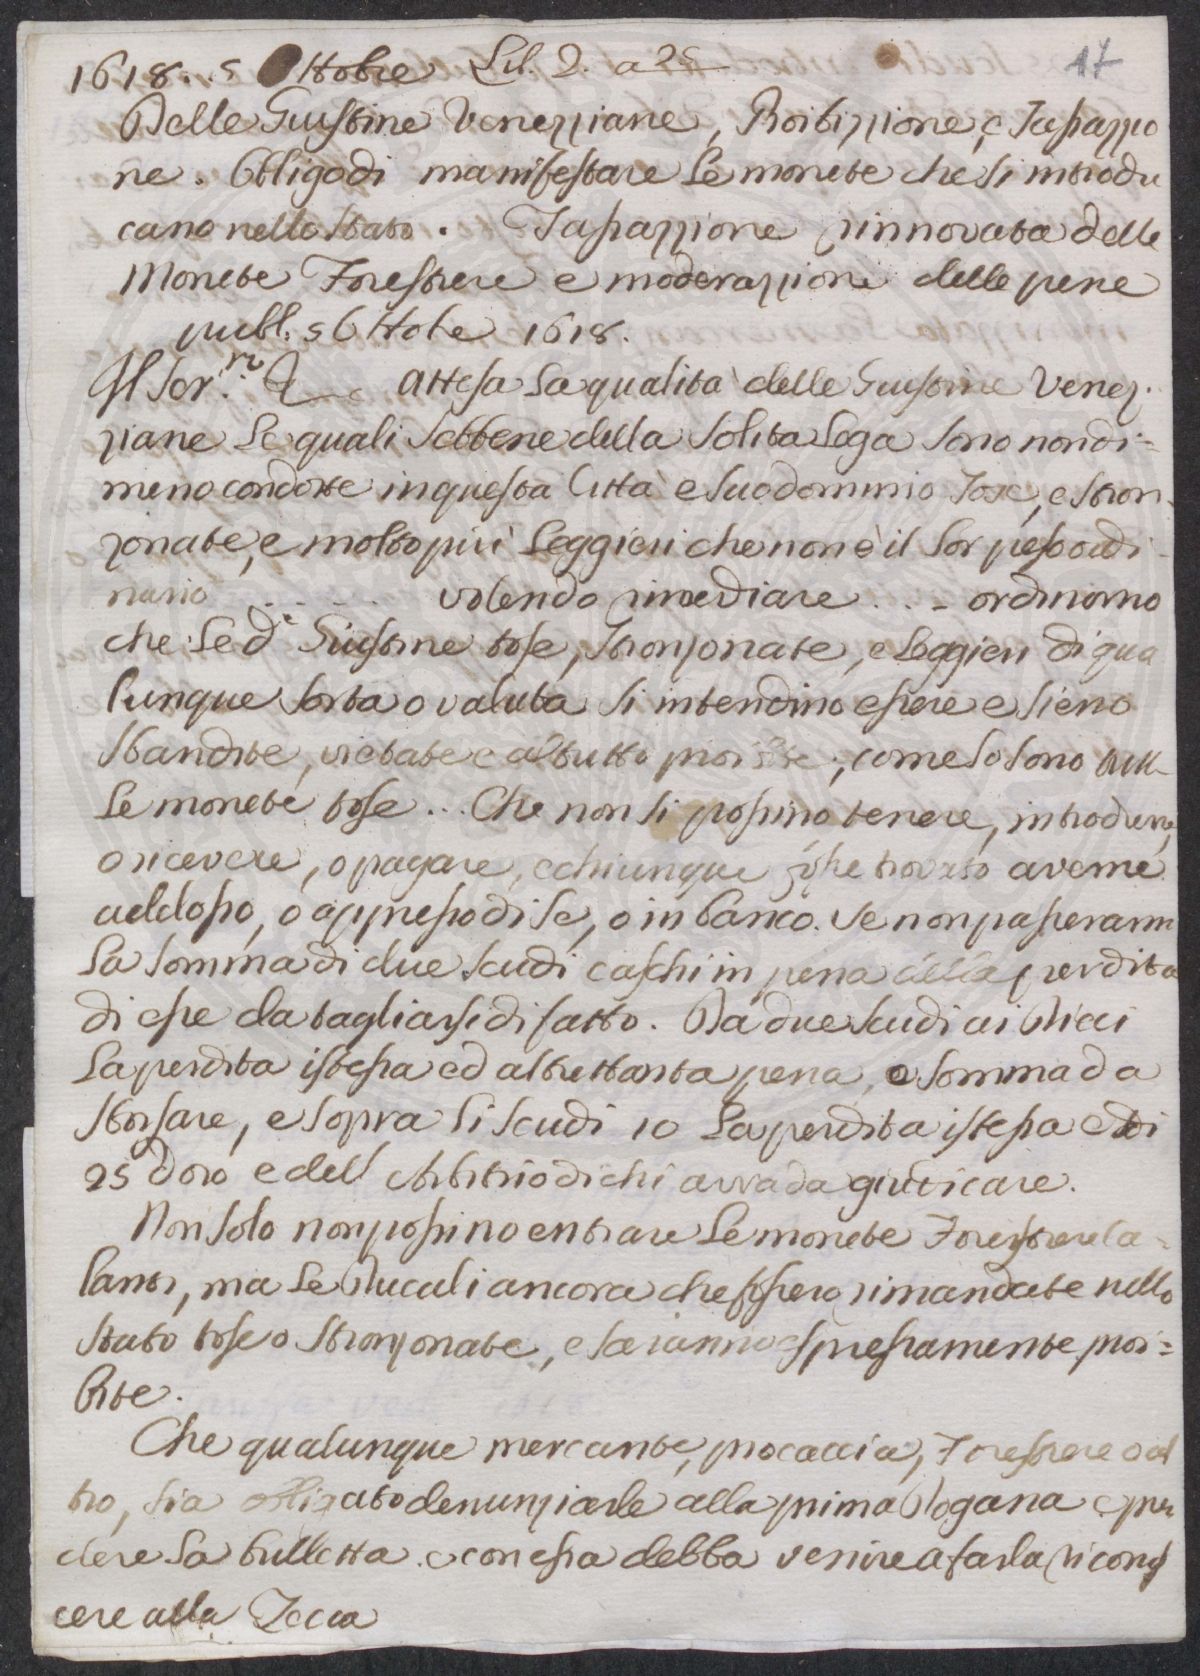 17
1618. 5 Ottobre Lib. 2. a 25
Delle Giustine Veneziane, Proibizzione, e Tassazzio
ne. Obbligo di manifestare le monete che si introdu
cano nello stato. Tassazzione rinnovata delle
Monete Forestiere e moderazzione delle pene
publ. 5 Ottobe 1618.
Il Ser.mo & Attesa la qualità delle Giustine Venez.
ziane le quali sebbene della solita Lega sono nondi=
meno condotte in questa Città e suo dominio Tose, e stron
zonate, e molto più leggieri che non è il lor peso ordi
nario ...... volendo rimediare ... ordinorno
che le d.e Giustine tose, stronzonate, e leggieri di qua
lunque sorta o valuta si intendino essere e sieno
sbandite, vietate e al tutto proibite, come lo sono tutte
le monete tose... Che non si possino tenere, introdurre,
o ricevere, o pagare, e chiunque fosse trovato averne
addosso, o appresso di se, o in banco. Se non passeranno
la somma di due scudi caschi in pena della perdita
di esse da tagliarsi di fatto. Da due scudi ai Dieci
la perdita istessa ed altrettanta pena, e somma da
sborsare, e sopra li scudi 10 la perdita istessa e di
25 d'oro e dell'Arbitrio di chi avrà da giudicare.
Non solo non possino entrare le monete Forestiere ca=
lanti, ma le Ducali ancora che fossero rimandate nello
stato tose o stronzonate, e saranno espressamente proi=
bite.
Che qualunque mercante, procaccia, Forestiere o al
tro, sia obbligato denunziarle alla prima Dogana e pren
dere la bulletta e con essa debba venire a farla riconos
cere alla Zecca